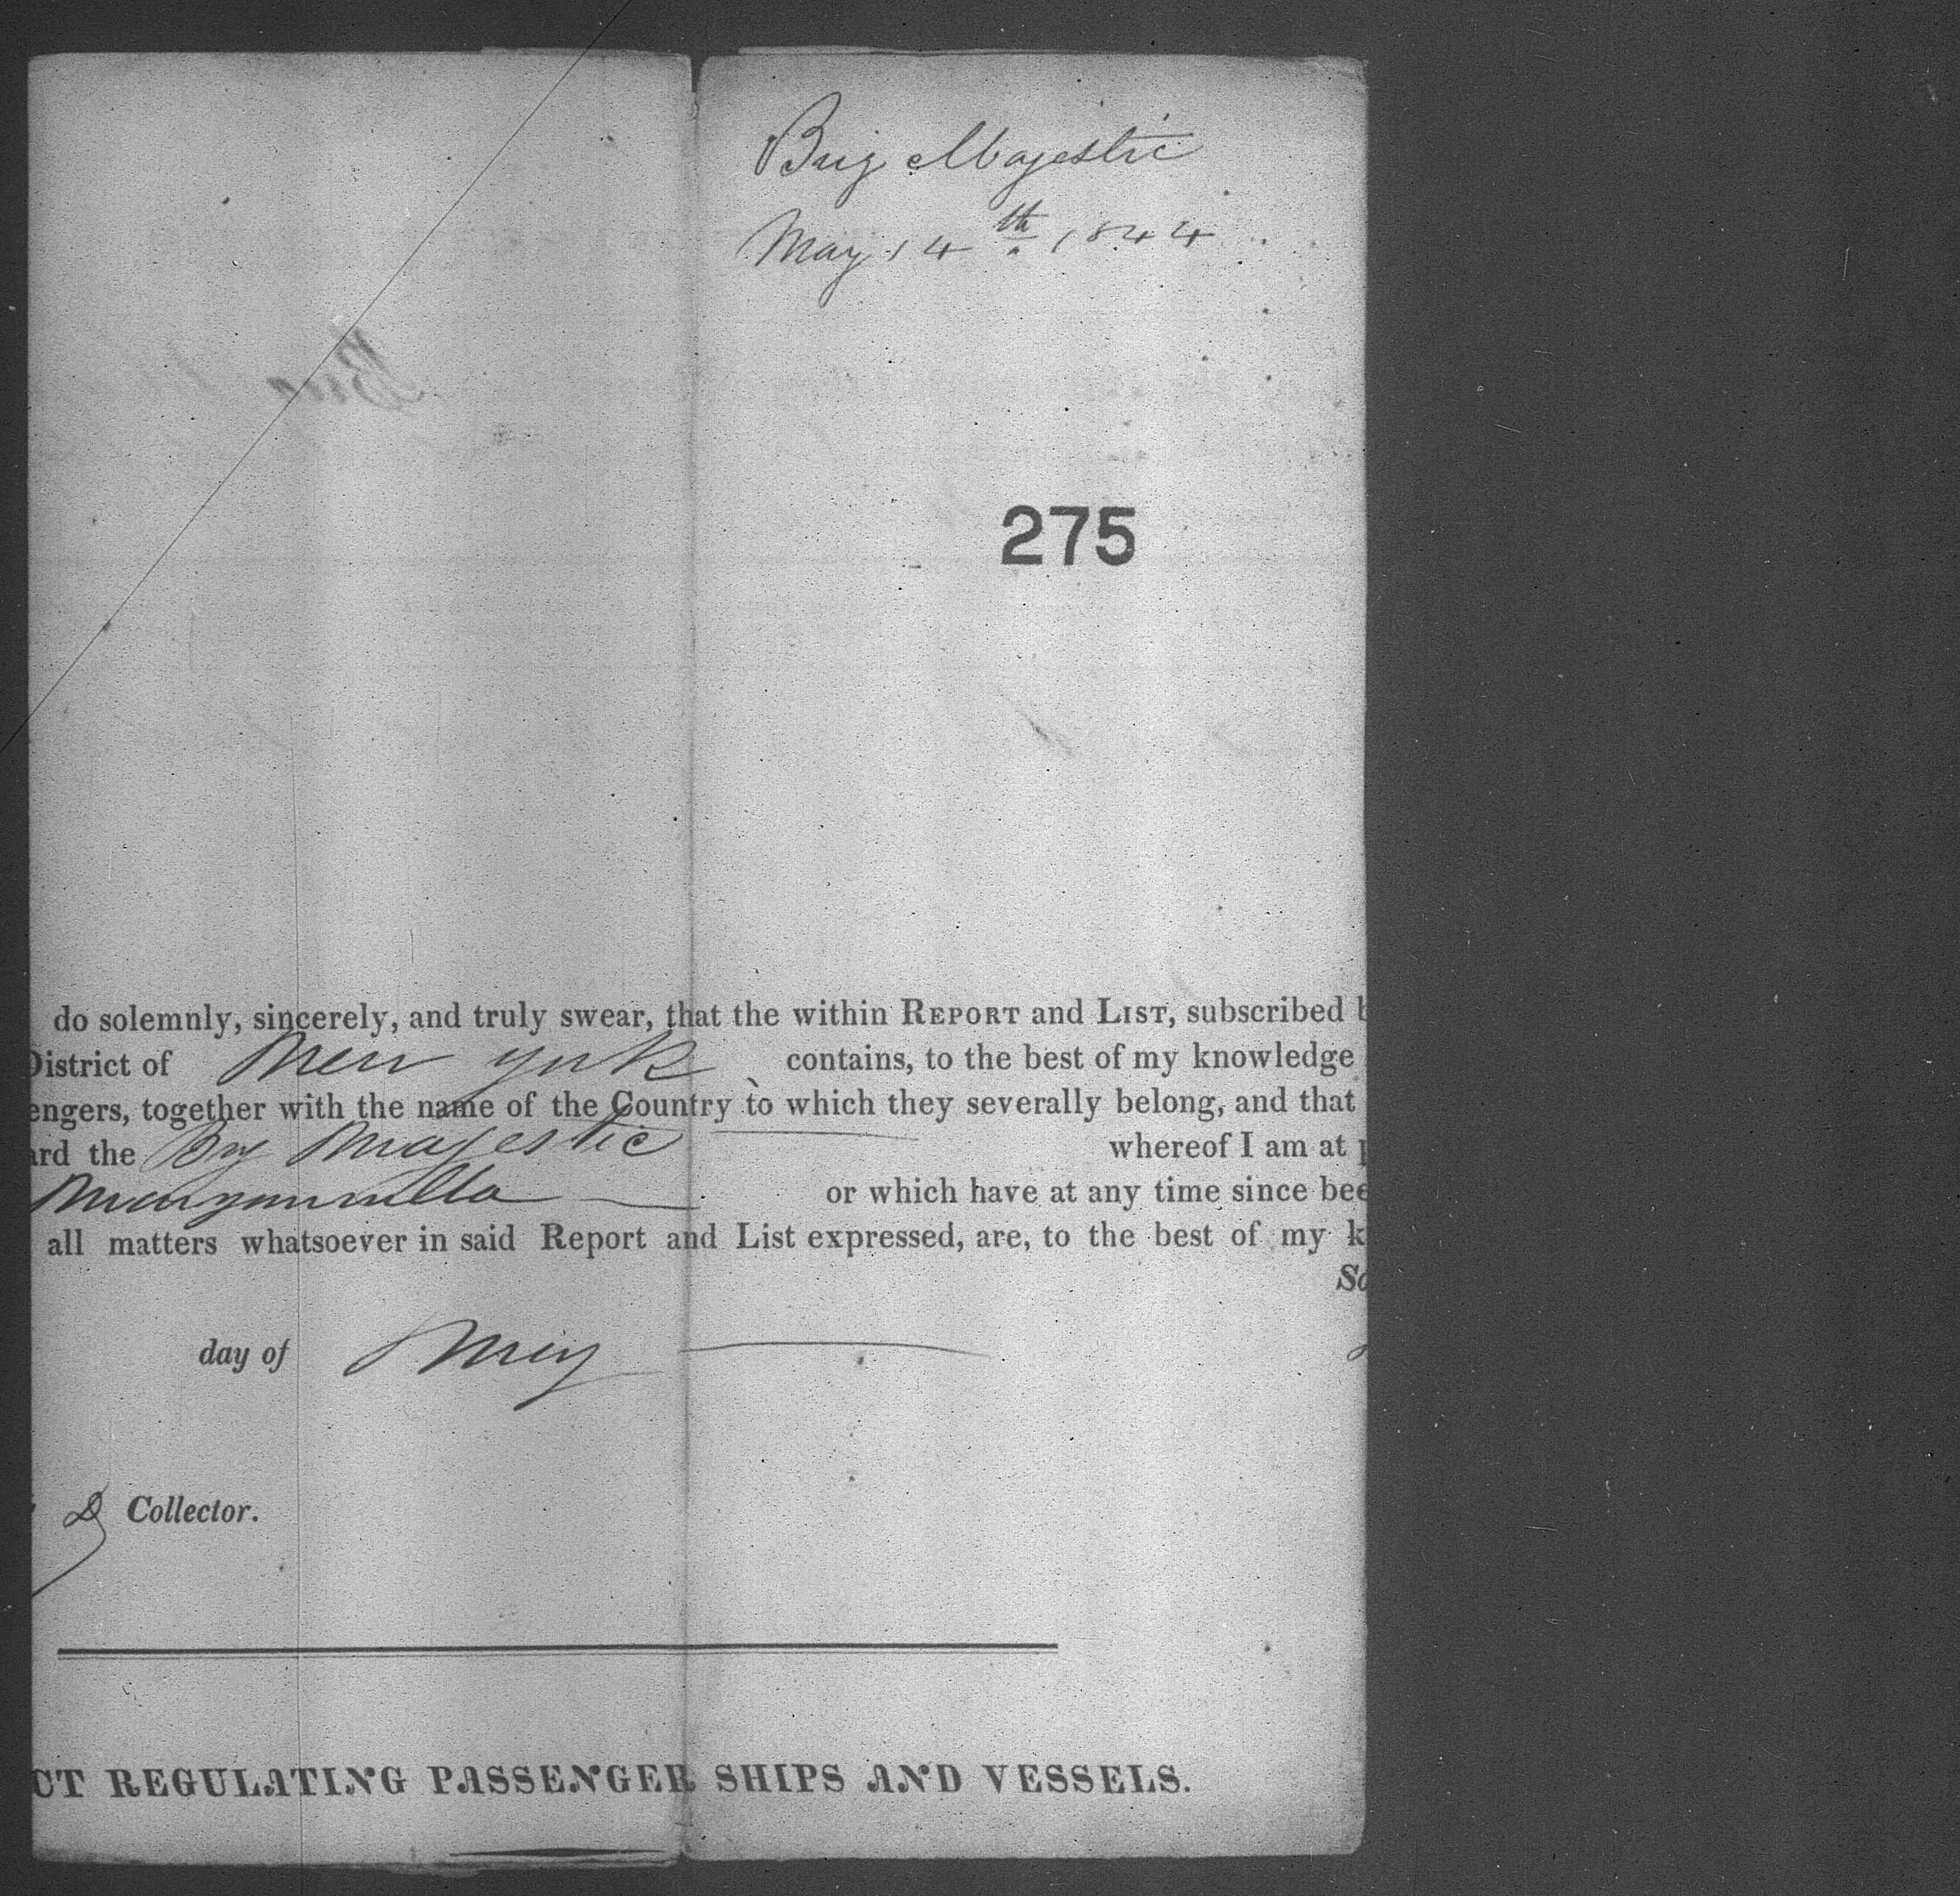 Brig Majestic
May 14th 1844
275
do solemnly, sincerely, and truly swear, that the within REPORT and LIST, subscribed b
District of New York contains, to the best of my knowledge
engers, together with the name of the Country to which they severally belong, and that
ard the Brig Majestic whereof I am at p
or which have at any time since bee
all matters whatsoever in said Report and List expressed, are, to the best of my k
So
day of May
D Collector.
CT REGULATING PASSENGER SHIPS AND VESSELS.